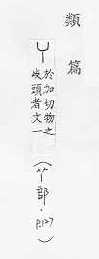 類篇
丫
於加切物之
歧頭者文一
(丫部·P.127)